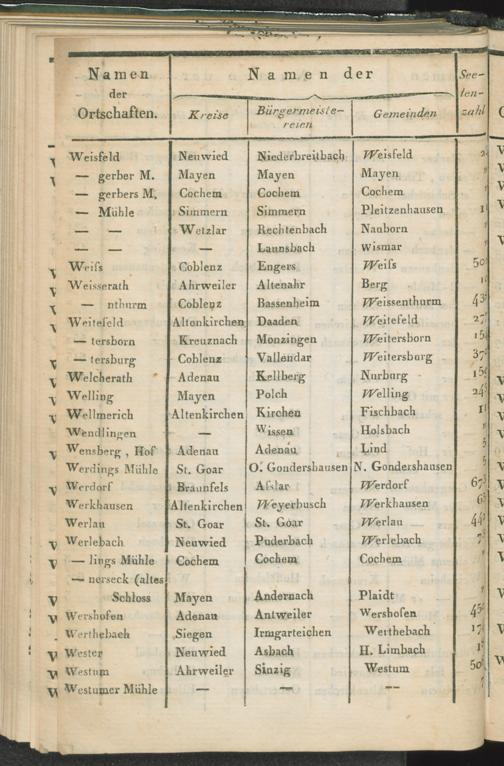 Namen der Ortschaften. | Namen der | See-len-zahl
Kreise | Bürgermeiste-reien | Gemeinden
Weisfeld | Neuwied | Niederbreitbach | Weisfeld
— gerber M. | Mayen | Mayen | Mayen
— gerbers M. | Cochem | Cochem | Cochem
— Mühle | Simmern | Simmern | Pleitzenhausen
— — | Wetzlar | Rechtenbach | Nauborn
— — | — | Launsbach | Wismar
Weiſs | Coblenz | Engers | Weiſs
Weisserath | Ahrweiler | Altenahr | Berg
— nthurm | Coblenz | Bassenheim | Weissenthurm
Weitefeld | Altonkirchen | Daaden | Weitefeld
— tersborn | Kreuznach | Monzingen | Weitersborn
— tersburg | Coblenz | Vallendar | Weitersburg
Welcherath | Adenau | Kellberg | Nurburg
Welling | Mayen | Polch | Welling
Wellmerich | Altenkirchen | Kirchen | Fischbach
Wendlingen | — | Wissen | Holsbach
Wensberg, Hof | Adenau | Adenau | Lind
Werdings Mühle | St. Goar | O. Gondershausen | N. Gondershausen
Werdorf | Braunfels | Aſslar | Werdorf
Werkhausen | Altenkirchen | Weyerbusch | Werkhausen
Werlau | St. Goar | St. Goar | Werlau
Werlebach | Neuwied | Puderbach | Werlebach
— lings Mühle | Cochem | Cochem | Cochem
— nerseck (altes
Schloss | Mayen | Andernach | Plaidt
Wershofen | Adenau | Antweiler | Wershofen
Werthebach | Siegen | Irmgarteichen | Werthebach
Wester | Neuwied | Asbach | H. Limbach
Westum | Ahrweiler | Sinzig | Westum
Westumer Mühle | — | — | —